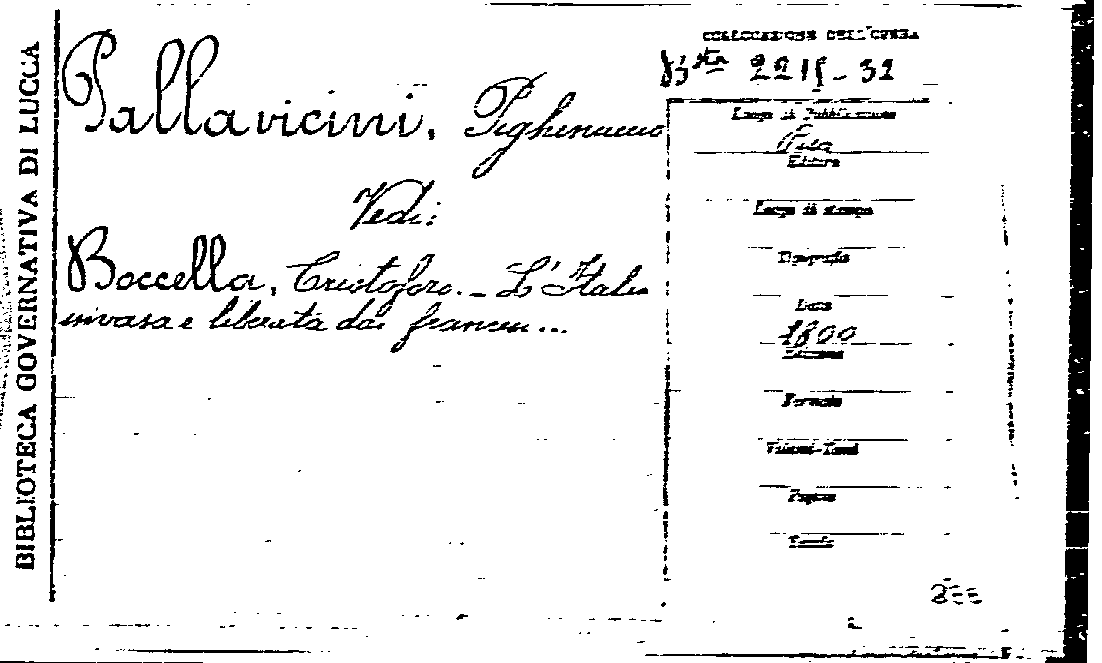 BIBLIOTECA GOVERNATIVA DI LUCCA
COLLOCAZIONE DELL'OPERA
Bta 2215-32
Pallavicini, Pighenuccio
Vedi:
Boccella, Cristoforo. - L'Italia
invasa e liberata dai francesi ...
Luogo di Pubblicazione
Pisa
Editore
Luogo di stampa
Tipografia
Data
1800
Edizione
Formato
Volumi-Tomi
Pagine
Tavole